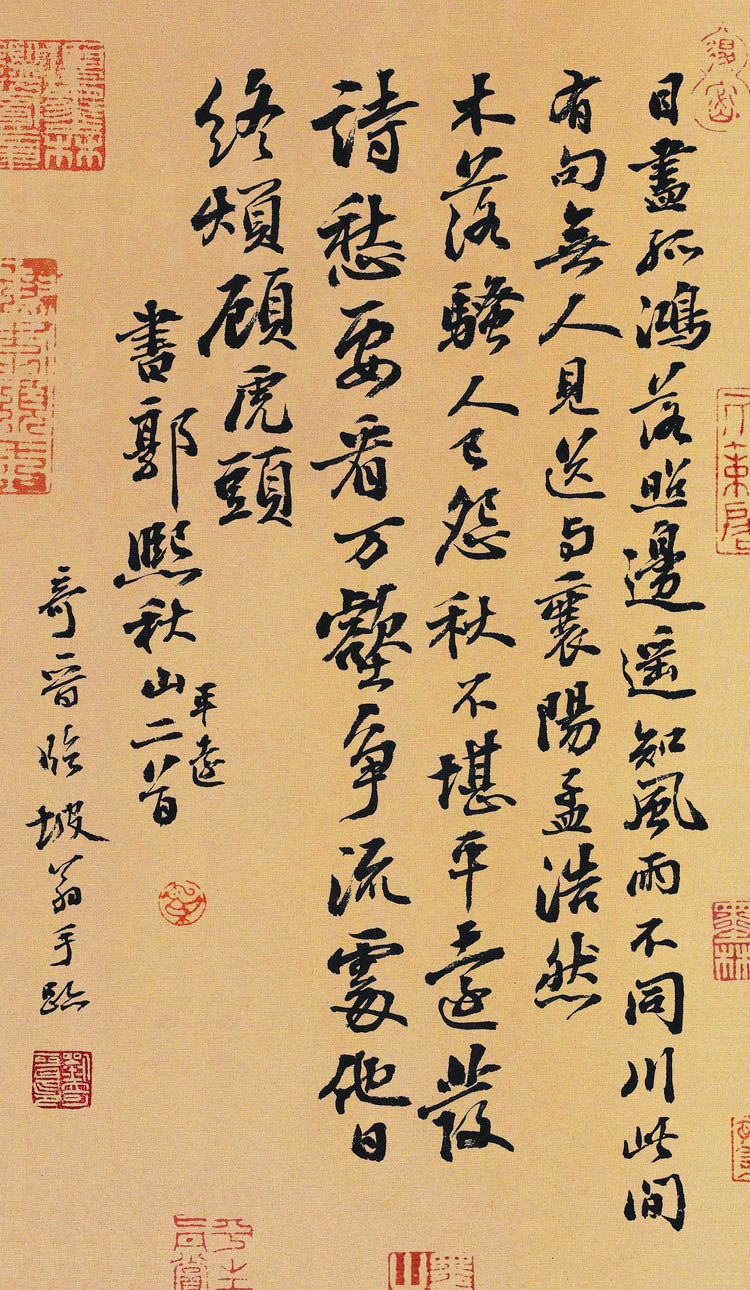 目盡孤鴻落照邊遥知風雨不同川此間
有句無人見送与襄陽孟浩然
木落騷人已怨秋不堪平遠發
詩愁要看万壑争流處他日
終煩顧虎頭
書郭熙秋山平遠二首
奇晋临坡翁手跡